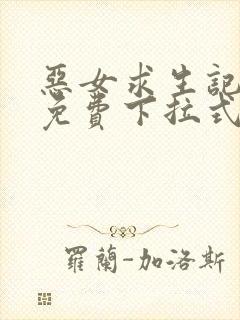 惡女求生記
免費下拉式
羅蘭-加洛斯